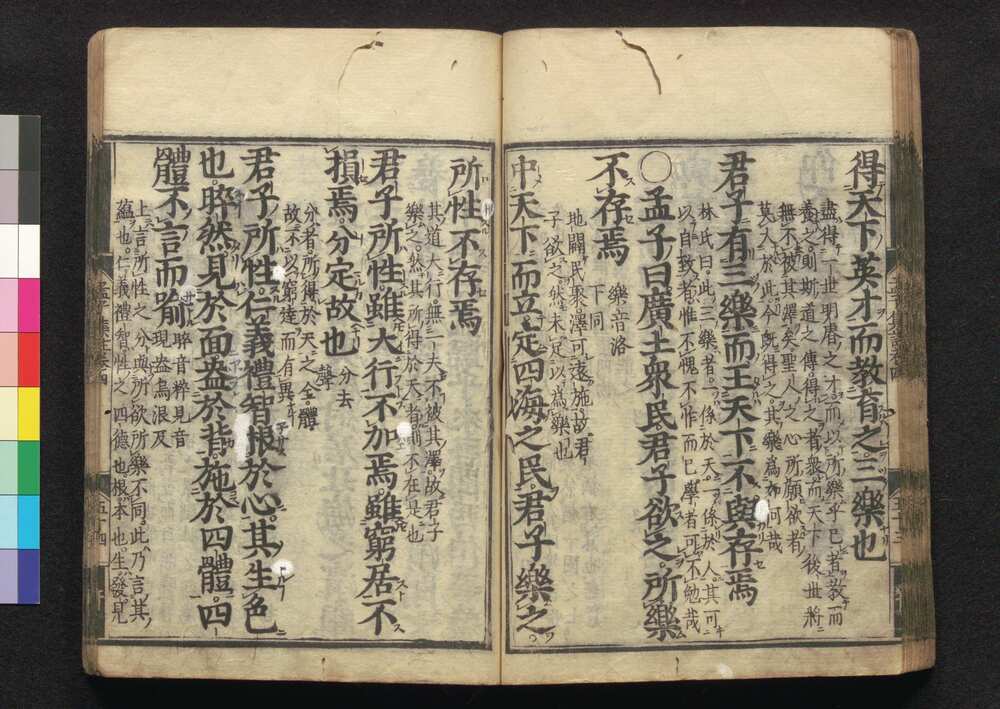 得天下英才而教育之三樂也
盡得一世明睿之才而以所樂乎己者教而
養之則斯道之傳得之者衆而天下後世將
無不被其澤矣聖人之心所願欲者
莫大於此今既得之其樂爲如何哉
君子有三樂而王天下不與存焉
林氏曰此三樂者一係於天一係於人其可
以自致者惟不愧不怍而已學者可不勉哉
○孟子曰廣土衆民君子欲之所樂
不存焉
樂音洛
下同
地闢民聚澤可遠施故君
子欲之然未足以爲樂也
中天下而立定四海之民君子樂之
所性不存焉
其道大行無一夫不被其澤故君子
樂之然其所得於天者則不在是也
君子所性雖大行不加焉雖窮居不
損焉分定故也
分去
聲
分者所得於天之全體
故不以窮達而有異
君子所性仁義禮智根於心其生色
也睟然見於面盎於背施於四體四
體不言而喻
睟音粹見音
現盎烏浪反
上言所性之分與所欲所樂不同此乃言其
蘊也仁義禮智性之四德也根本也生發見
五十四